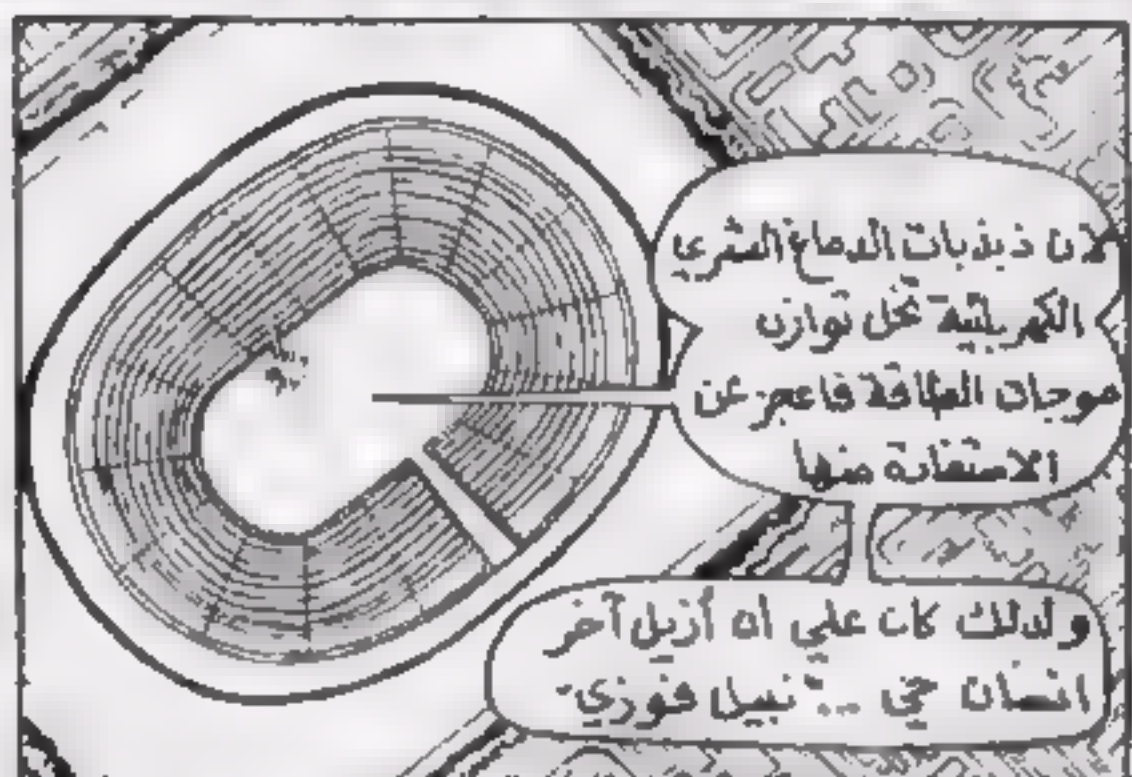 لان ذبذبات الدماغ البشري
الكهربائية تخل توازن
موجات الطاقة فاعجز عن
الاستفادة منها
ولذلك كان علي ان أزيل آخر
انسان حي .. نبيل فوزي